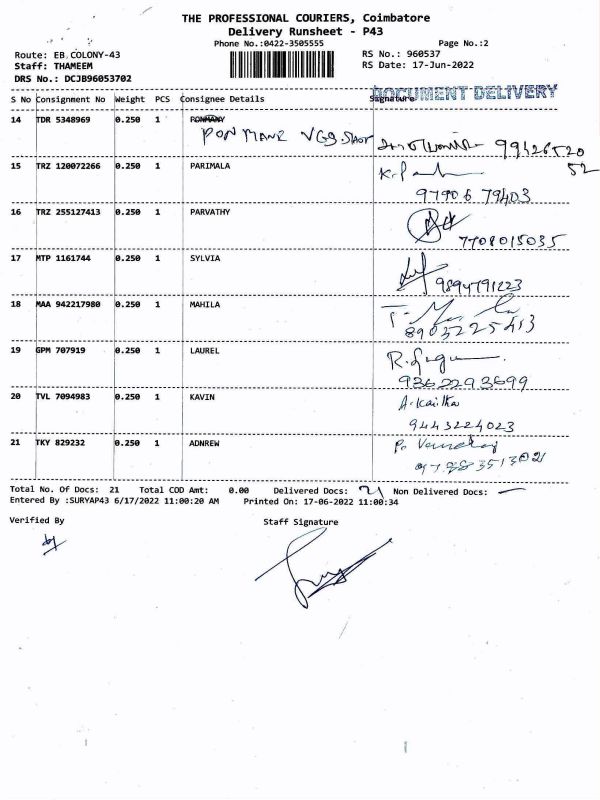 THE PROFESSIONAL COURIERS, Coimbatore
Delivery Runsheet - P43
Phone No.:0422-3505555
Page No.:2
Route: EB COLONY-43
RS No.: 960537
Staff: THAMEEM
RS Date: 17-Jun-2022
DRS No.: DCJB96053702
DOCUMENT DELIVERY
S No Consignment No Weight PCS Consignee Details Signature
14 TDR 5348969 0.250 1 PONMANY
PON MANI 99426520
52
15 TRZ 120072266 0.250 1 PARIMALA
97906 79403
16 TRZ 255127413 0.250 1 PARVATHY
7708015035
17 MTP 1161744 0.250 1 SYLVIA
9894791223
18 MAA 942217980 0.250 1 MAHILA
8903225413
19 GPM 707919 0.250 1 LAUREL
9362293699
20 TVL 7094983 0.250 1 KAVIN
A. Kavitha
9443224023
21 TKY 829232 0.250 1 ADNREW
Total No. Of Docs: 21 Total COD Amt: 0.00 Delivered Docs: 21 Non Delivered Docs: —
Entered By :SURYAP43 6/17/2022 11:00:20 AM Printed On: 17-06-2022 11:00:34
Verified By Staff Signature